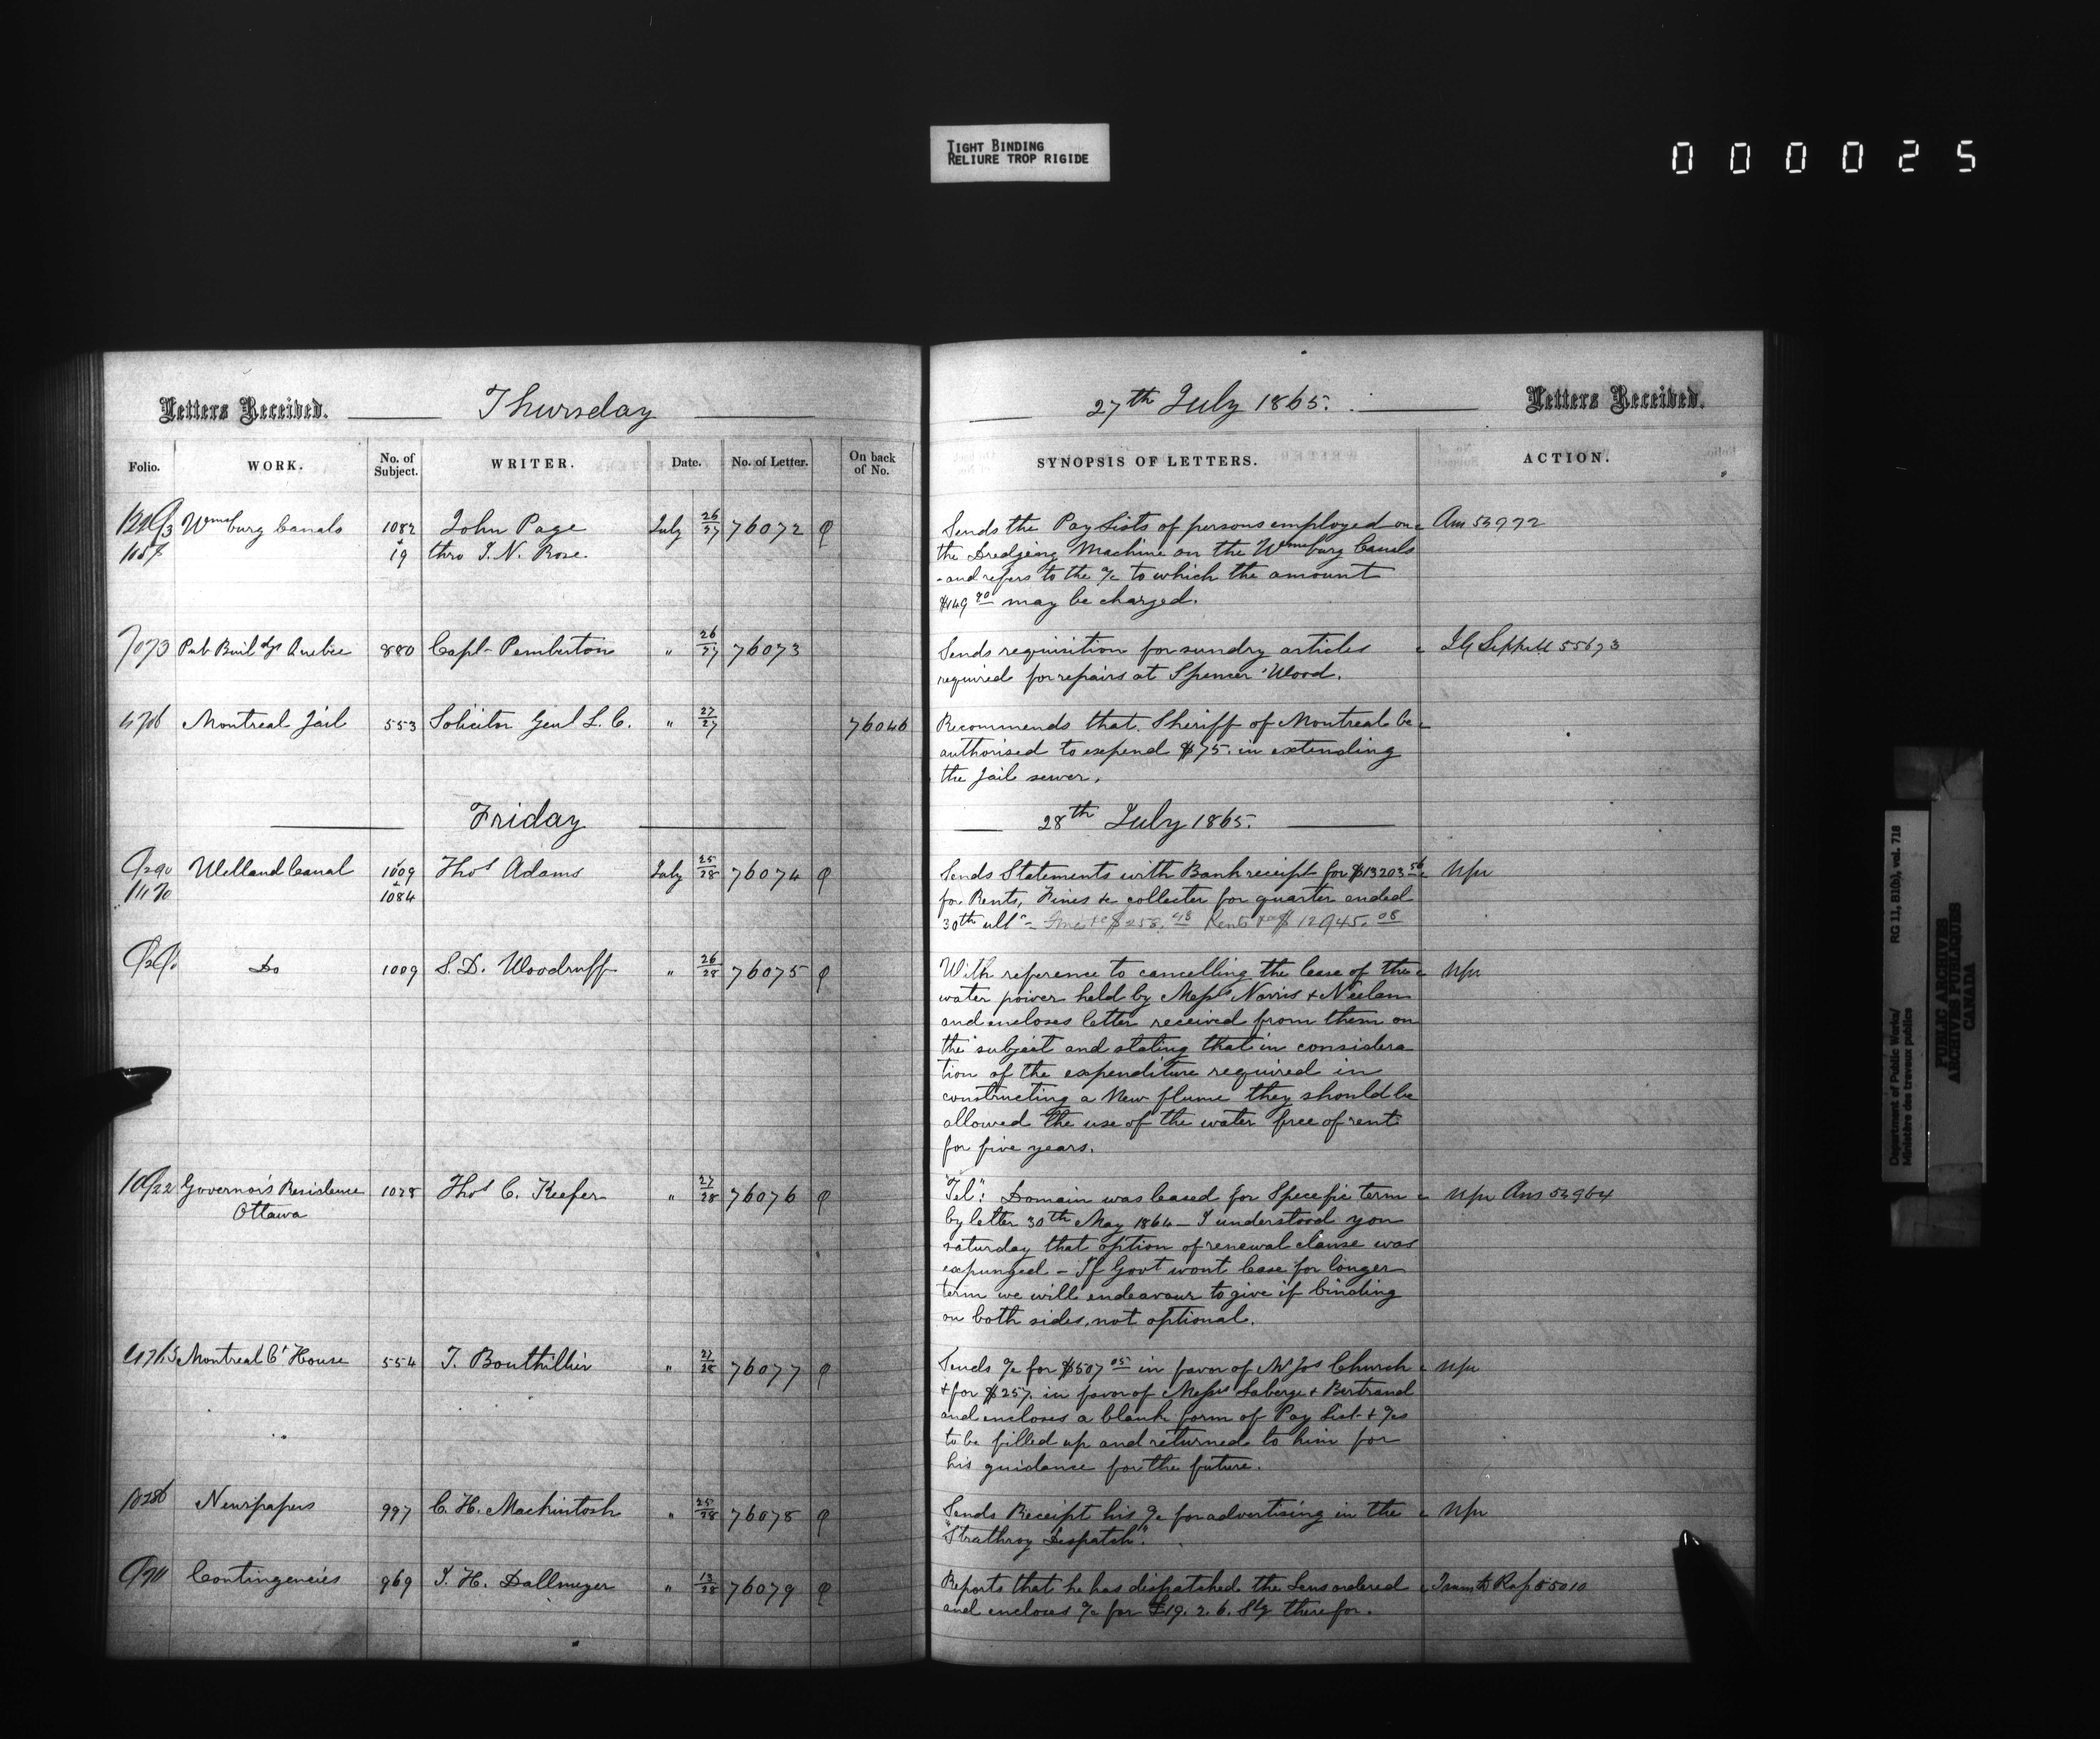 TIGHT BINDING
RELIURE TROP RIGIDE
000025
Letters Received. Thursday
27th July 1865. Letters Received.
Folio. WORK. No. of Subject. WRITER. Date. No. of Letter. On back of No.
SYNOPSIS OF LETTERS. ACTION.
Wmsburg Canals 1082 John Page July 26/27 76072
+ 19 thro I. N. Rose.
Sends the Pay Lists of persons employed on
the Dredging Machine on the Wmsburg Canals
and refers to the a/c to which the amount
may be charged.
Ans 53972
7073 Pub Buildgs Quebec 880 Capt Pemberton " 26/27 76073
Sends requisition for sundry articles
required for repairs at Spencer Wood.
55673
Montreal Jail 553 Solicitor Genl L. C. " 27/27 76046
Recommends that Sheriff of Montreal be
authorised to expend $75. in extending
the Jail sewer.
Friday
28th July 1865.
Welland Canal 1009 Thos Adams July 25/28 76074
+ 1084
Sends Statements with Bank receipt for $13203.56
for Rents, Fines &c collected for quarter ended
30th ulto
$12945.08
Do 1009 S. D. Woodruff " 26/28 76075
With reference to cancelling the lease of the
water power held by Messrs Norris & Neelon
and encloses letter received from them on
the subject and stating that in considera
tion of the expenditure required in
constructing a New flume they should be
allowed the use of the water free of rent
for five years.
Governor's Residence 1028 Thos C. Keefer " 27/28 76076
Ottawa
"Tel". Domain was leased for Specific term
by letter 30th May 1864 – I understood you
saturday that option of renewal clause was
expunged – If Govt wont lease for longer
term we will endeavour to give if binding
on both sides, not optional.
Ans
Montreal Ct House 554 T. Bouthillier " 27/28 76077
Sends a/c for $507.05 in favor of Mr Jos Church
& for $257. in favor of Messrs Laberge & Bertrand
and encloses a blank form of Pay List & a/cs
to be filled up and returned to him for
his guidance for the future.
Newspapers 997 C. H. Mackintosh " 25/28 76078
Sends Receipt his a/c for advertising in the
"Strathroy Dispatch".
Contingencies 969 J. H. Dallmeyer " 13/28 76079
Reports that he has dispatched the Lens ordered
and encloses a/c for £19. 2. 6. Stg therefor.
Department of Public Works/ RG 11, B1(b), vol. 718
Ministère des travaux publics
PUBLIC ARCHIVES
ARCHIVES PUBLIQUES
CANADA